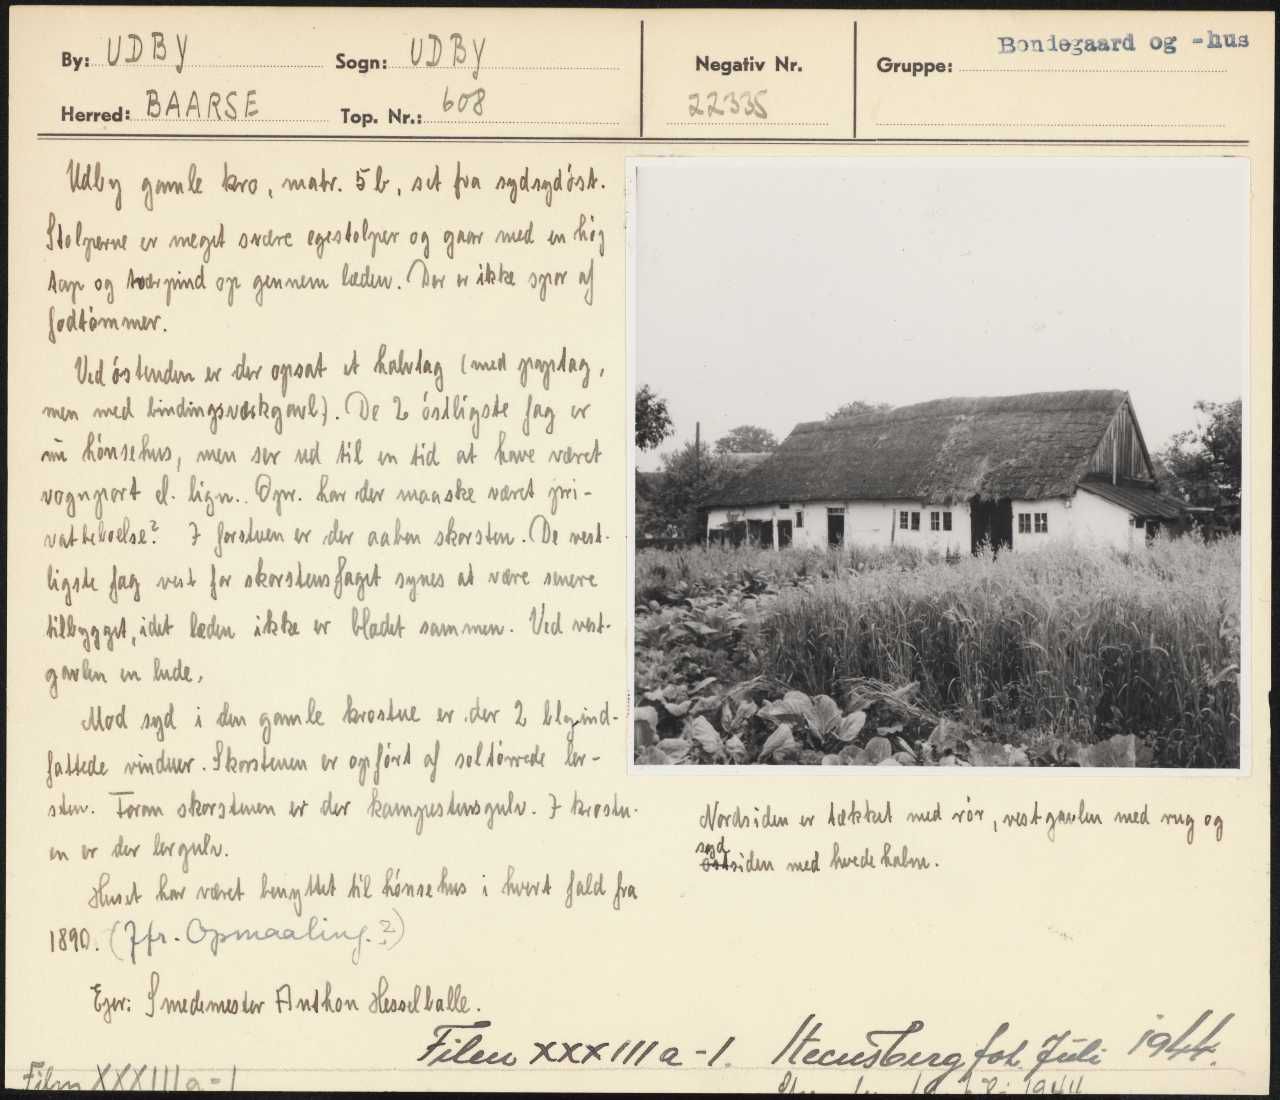 By: UDBY
Sogn: UDBY
Negativ Nr.
22335
Gruppe:
Bondegaard og -hus
Herred: BAARSE
Top. Nr.: 608
Udby gamle kro, matr. 5 b, set fra sydsydöst.
Stolperne er meget svære egestolper og gaar med en höj
tap og tværpind op gennem læden. Der er ikke spor af
fodtömmer.
Ved östenden er der opsat et halvtag (med paptag,
men med bindingsværkgavl). De 2 östligste fag er
nu hönsehus, men ser ud til en tid at have været
vognport el. lign.. Opr. har der maaske været pri-
vatbeboelse? I forstuen er der aaben skorsten. De vest-
ligste fag vest for skorstensfaget synes at være senere
tilbygget, idet læden ikke er bladet sammen. Ved vest-
gavlen en lude.
Mod syd i den gamle krostue er der 2 blyind-
fattede vinduer. Skorstenen er opfört af soltörrede ler-
sten. Foran skorstenen er der kampestensgulv. I krostu-
en er der lergulv.
Huset har været benyttet til hönsehus i hvert fald fra
1890. (Jfr. Opmaaling.?)
Ejer: Smedemester Anthon Hesselballe.
Nordsiden er tækket med rör, vestgavlen med rug og
syd
östsiden med hvedehalm.
Film XXXIII a-1. Steensberg fot. Juli 1944.
Film XXXIII a-1